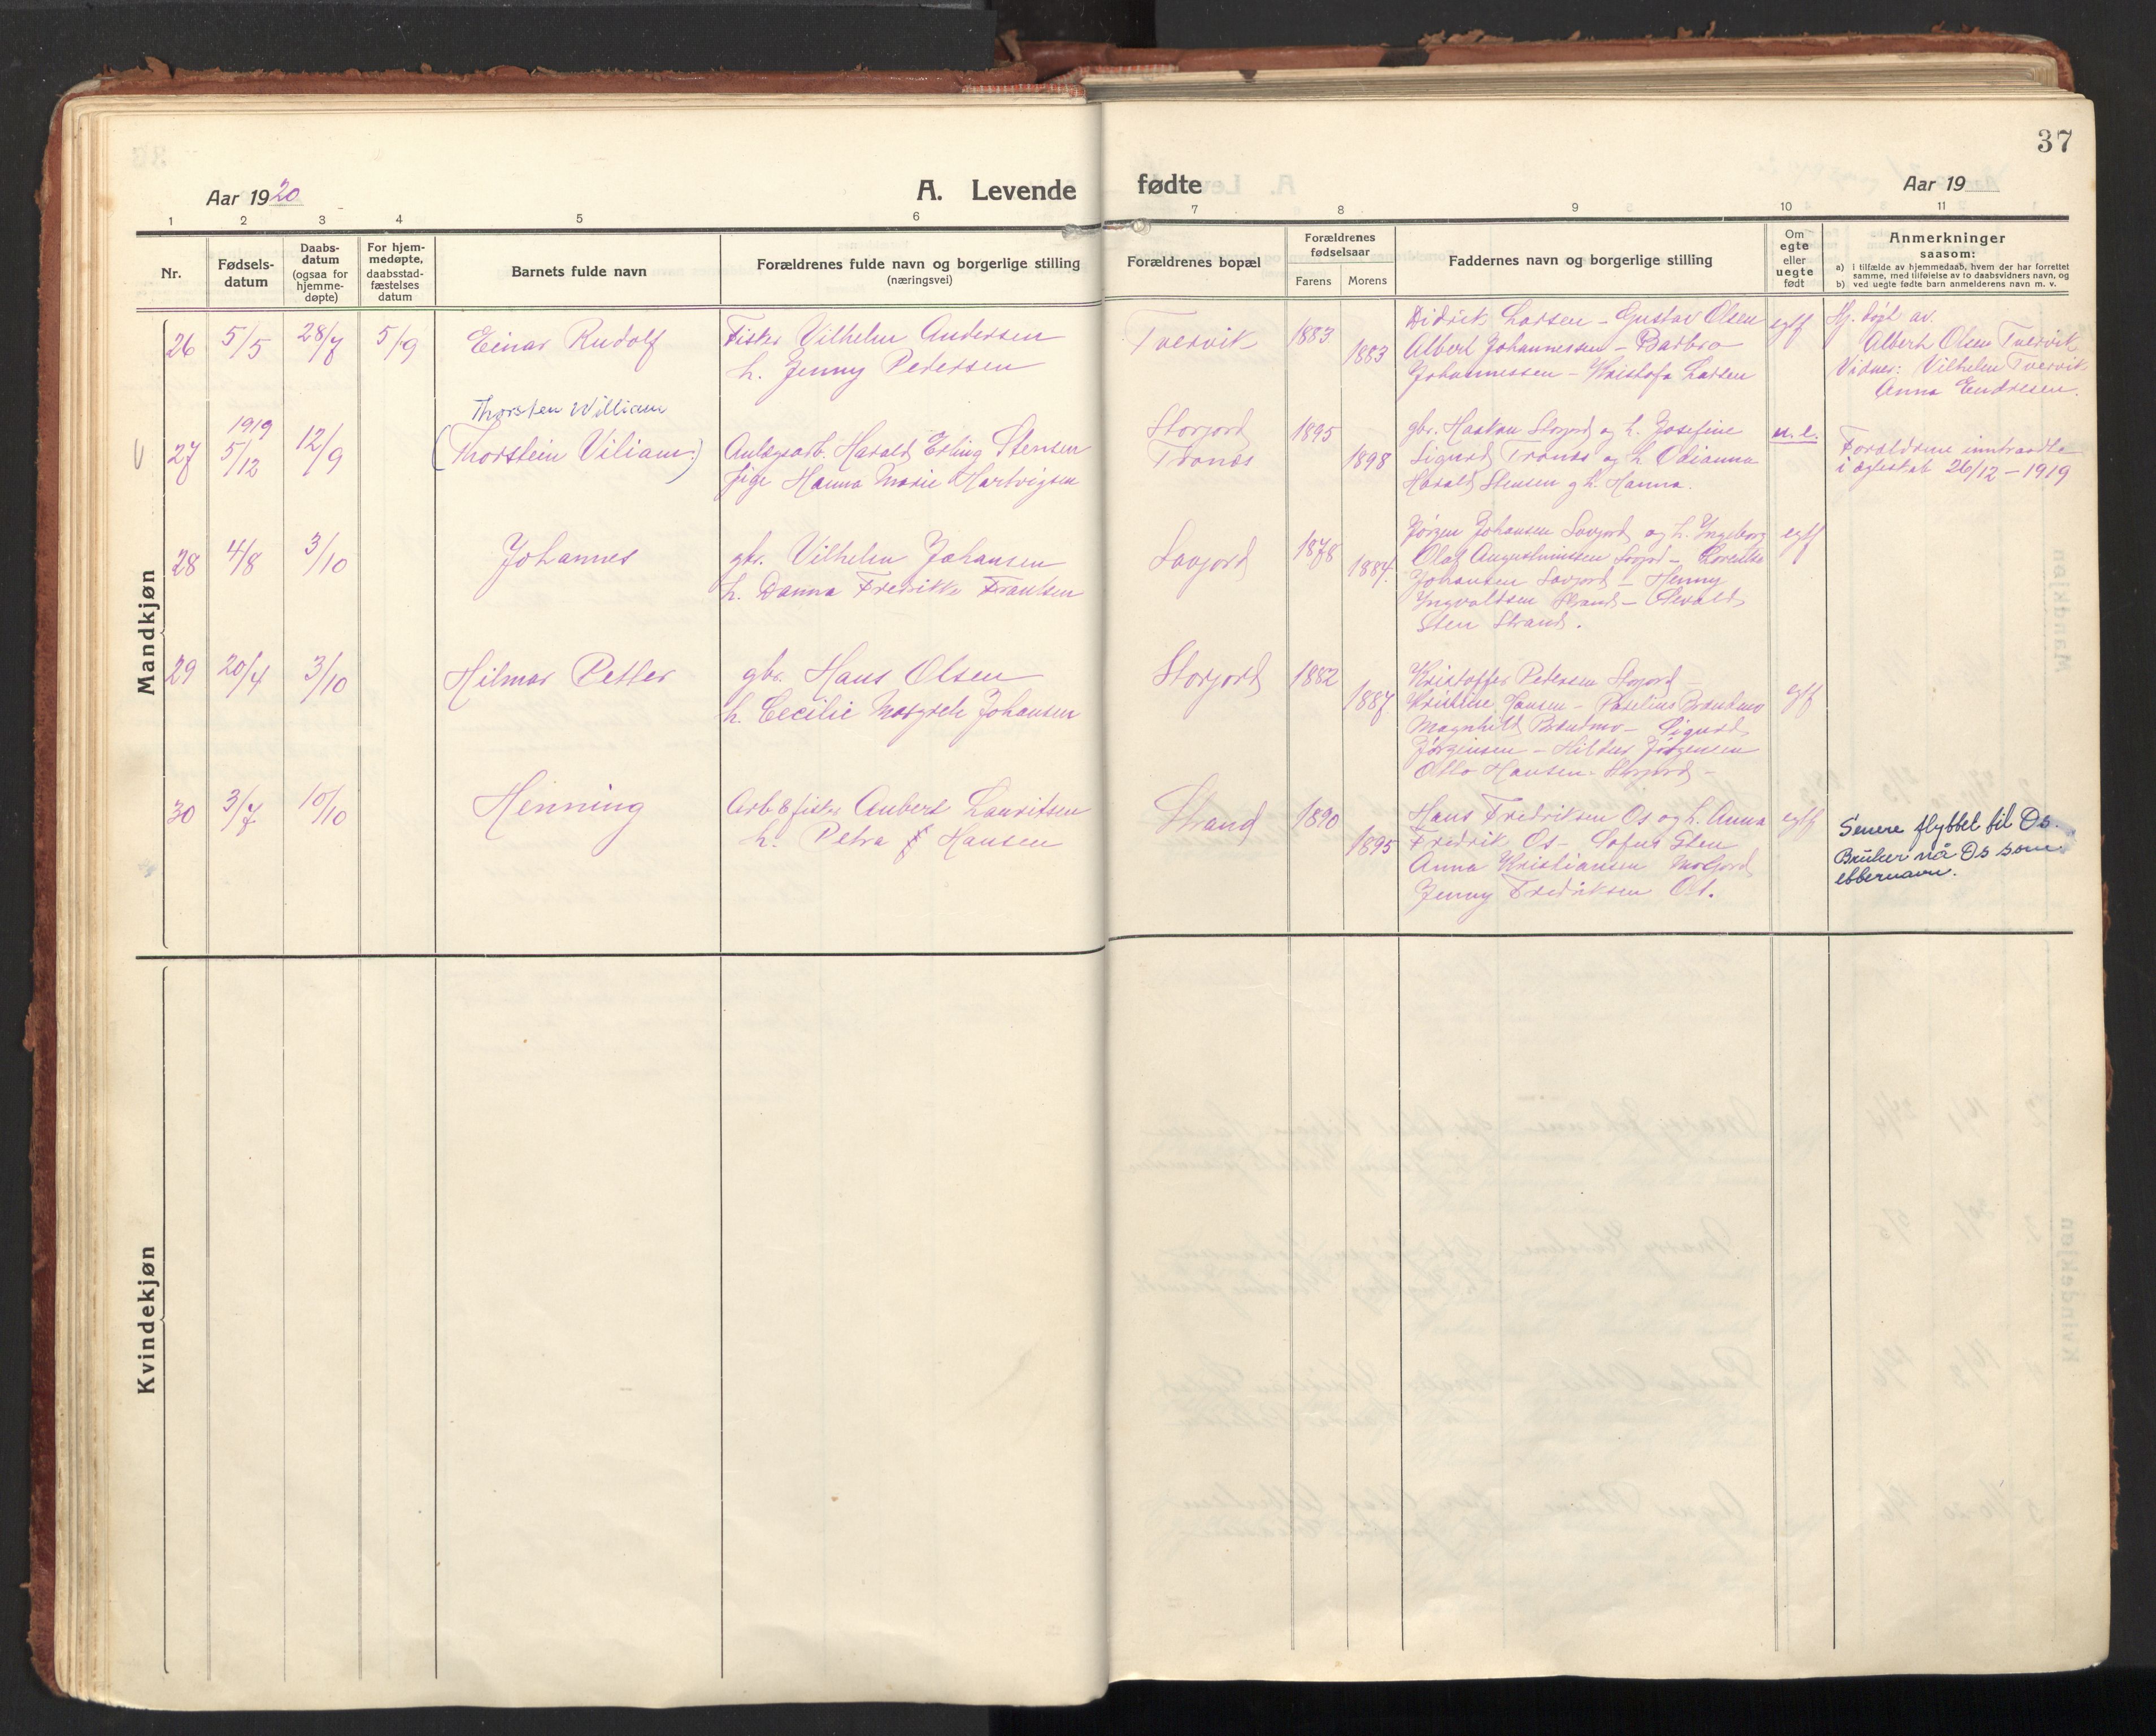 37
Aar 1920
A. Levende fødte
Aar 19
1 2 3 4 5 6 7 8 9 10 11
Nr.
Fødsels-
datum
Daabs-
datum
(ogsaa for
hjemme-
døpte)
For hjem-
medøpte,
daabsstad-
fæstelses
datum
Barnets fulde navn
Forældrenes fulde navn og borgerlige stilling
(næringsvei)
Forældrenes bopæl
Forældrenes
fødselsaar
Farens Morens
Faddernes navn og borgerlige stilling
Om
egte
eller
uegte
født
Anmerkninger
saasom:
a) i tilfælde av hjemmedaab, hvem der har forrettet
samme, med tilføielse av to daabsvidners navn, og
b) ved uegte fødte barn anmelderens navn m. v.
Mandkjøn
26 5/5 28/7 5/9
Einar Rudolf
Fisker Vilhelm Andersen
h. Jenny Pedersen
Tvervik
1883
1883
Didrik Larsen - Gustav Olsen
Albert Johannessen - Barbro
Johannessen - Kristofa Larsen
egtf
Hj. døpt av
Albert Olsen Tvervik
Vidner: Vilhelm Tvervik
Anna Endresen.
27 1919 5/12 12/9
Thorsten William
(Thorstein Viliam)
Anlægsarb. Harald Erling Stensen
pige Hanna Marie Hartvigsen
Storjord
Tranes
1895
1898
gbr. Haakon Storjord og h. Josefine
Sigurd Tranes og h. Odianna
Harald Stensen og h. Hanna.
u. e.
Foreldrene inntraadte
i egteskab 26/12 - 1919
28 4/8 3/10
Johannes
gbr. Vilhelm Johansen
h. Danna Fredrikke Frantsen
Savjord
1878
1884
Jørgen Johansen Savjord og h. Ingeborg
Olaf Augustinussen
Johansen Savjord - Henny
Ingvaldsen Strand - Osvald
Sten Strand.
egtf
29 20/4 3/10
Hilmar Petter
gbr. Hans Olsen
h. Cecilie Margrete Johansen
Storjord
1882
1887
Kristoffer Pedersen Storjord -
Kristine Hansen - Brandmo
Magnhild Brandmo - Sigurd
Jørgensen - Hildur Jørgensen
Otto Hansen Storjord -
egtf
30 3/7 10/10
Henning
Arb & fisker Aubert Lauritsen
h. Petra Hansen
Strand
1890
1895
Hans Fredriksen Os og h. Anna
Fredrik Os - Sofus Sten
Anna Kristiansen
Jenny Fredriksen Os.
egtf
Senere flyttet til Os.
Bruker nå Os som
etternavn.
Kvindekjøn